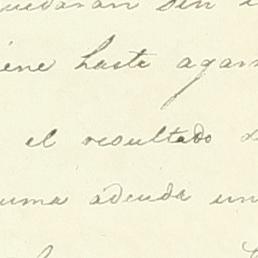 quedaran sin
iene hasta agar
el resultado d
uma adeuda un